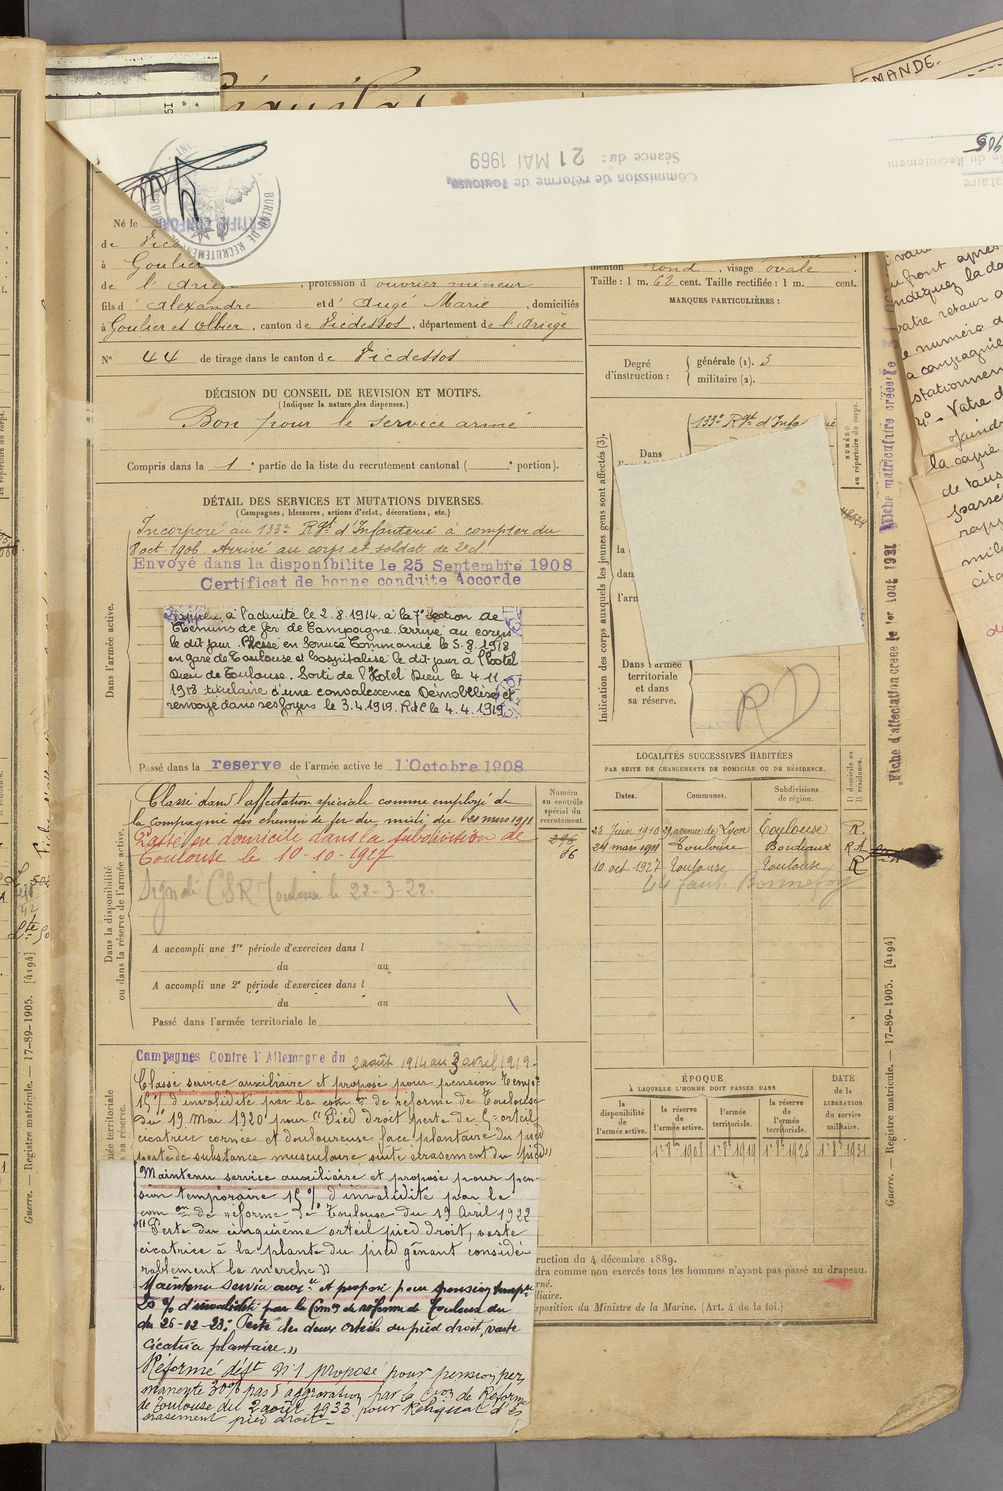 MANDE.
Commission de réforme de Toulouse
Séance du : 21 MAI 1969
BUREAU DE RECRUTEMENT
Né le
de
à Goulier
de l'Ariège, profession d'ouvrier mineur
fils d'Alexandre et d'Augé Marie, domiciliés
à Goulier et Olbier, canton de Vicdessos, département de l'Ariège
N° 44 de tirage dans le canton de Vicdessos
DÉCISION DU CONSEIL DE REVISION ET MOTIFS.
(Indiquer la nature des dispenses.)
Bon pour le service armé
Compris dans la 1e partie de la liste du recrutement cantonal ( e portion).
DÉTAIL DES SERVICES ET MUTATIONS DIVERSES.
(Campagnes, blessures, actions d'éclat, décorations, etc.)
Dans l'armée active.
Incorporé au 133e Rgt d'Infanterie à compter du
8 oct 1906 Arrivé au corps et soldat de 2e cl
Envoyé dans la disponibilité le 25 Septembre 1908
Certificat de bonne conduite Accordé
Rappelé à l'activité le 2.8.1914. à la 7e Section de
Chemins de fer de Campagne. arrivé au corps
le dit jour. Blessé en Service Commandé le 5.8.1918
en gare de Toulouse et hospitalisé le dit jour à l'hotel
Dieu de Toulouse. Sorti de l'Hotel Dieu le 4.11
1918 titulaire d'une convalescence Démobilisé et
renvoyé dans ses foyers le 3.4.1919. RdC le 4.4.1919
Passé dans la reserve de l'armée active le 1 Octobre 1908
Dans la disponibilité
ou dans la réserve de l'armée active.
Classé dans l'affectation spéciale comme employé de
la compagnie des chemins de fer du midi du 24 mars 1911
Passé en domicile dans la subdivision de
Toulouse le 10-10-1927
Toulouse le 22-3-22.
A accompli une 1re période d'exercices dans l
du au
A accompli une 2e période d'exercices dans l
du au
Passé dans l'armée territoriale le
Numéro
au contrôle
spécial du
recrutement.
66
Campagnes Contre l'Allemagne du 2 août 1914 au 3 avril 1919.
Classé service auxiliaire et proposé pour pension temp.
15% d'invalidité par la com on de réforme de Toulouse
du 19 Mai 1920 pour "Pied droit perte de 5e orteil
cicatrice cornée et douloureuse face plantaire du pied
perte de substance musculaire suite écrasement du pied"
Maintenu service auxiliaire et proposé pour pen-
sion temporaire 15% d'invalidité par la
com on de réforme de Toulouse du 19 Avril 1922
"Perte du cinquième orteil pied droit, vaste
cicatrice à la plante du pied gênant considé-
rablement la marche"
Maintenu service auxre et proposé pour pension tempre
20% d'invalidité par la Comon de réforme de Toulouse du
du 26-12-23: Perte des deux orteils du pied droit, vaste
cicatrice plantaire."
Réformé déft N°1 proposé pour pension per
manente 30% pas d'aggravation par la Con de Réforme
de Toulouse du 2 août 1933 pour Reliquat d'é
crasement pied droit.
menton rond, visage ovale
Taille : 1 m. 62 cent. Taille rectifiée : 1 m. cent.
MARQUES PARTICULIÈRES :
Degré
d'instruction :
générale (1). 3
militaire (2).
Indication des corps auxquels les jeunes gens sont affectés (3).
Dans
133e Rgt d'Infanterie
NUMÉRO
au répertoire du corps.
la
dan
l'arm
Dans l'armée
territoriale
et dans
sa réserve.
RD
LOCALITÉS SUCCESSIVES HABITÉES
PAR SUITE DE CHANGEMENTS DE DOMICILE OU DE RÉSIDENCE.
Dates. Communes. Subdivisions de région. D domicile ou R résidence.
1910 29 avenue de Lyon Toulouse R.
24 mars 1911 Toulouse Bordeaux RA
10 oct 1927 Toulouse Toulouse R
44 faub Bonnefoy
ÉPOQUE
À LAQUELLE L'HOMME DOIT PASSER DANS
DATE
de la
LIBÉRATION
du service
militaire.
la
disponibilité
de l'armée active.
la réserve
de
l'armée active.
l'armée
territoriale.
la réserve
de
l'armée
territoriale.
1er 8bre 1908 1er 8bre 1919 1er 8bre 1925 1er 8bre 1931
ruction du 4 décembre 1889.
dra comme non exercés tous les hommes n'ayant pas passé au drapeau.
rné.
liaire.
sposition du Ministre de la Marine. (Art. 4 de la loi.)
Guerre. — Registre matricule. — 17-89-1905. [4194]
Guerre. — Registre matricule. — 17-89-1905. [4194]